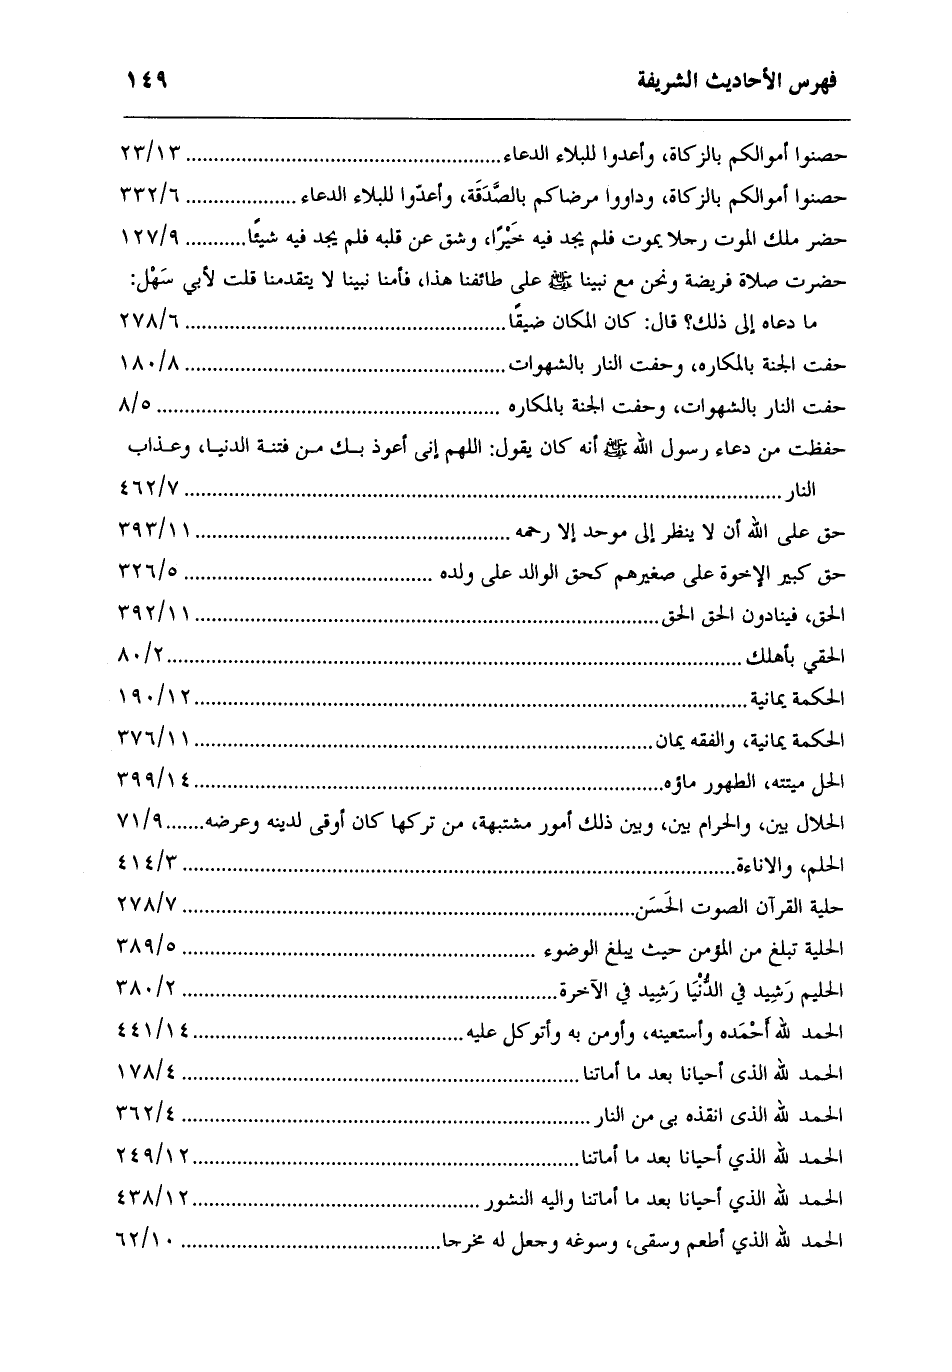 فهرس الأحاديث الشريفة ١٤٩
حصنوا أموالكم بالزكاة، وأعدوا للبلاء الدعاء ........ ٢٣/١٣
حصنوا أموالكم بالزكاة، وداووا مرضاكم بالصَّدَقَة، وأعدّوا للبلاء الدعاء ........ ٣٣٢/٦
حضر ملك الموت رحلا يموت فلم يجد فيه خَيْرًا، وشق عن قلبه فلم يجد فيه شيئًا ........ ١٢٧/٩
حضرت صلاة فريضة ونحن مع نبينا ﷺ على طائفنا هذا، فأمنا نبينا لا يتقدمنا قلت لأبي سَهْل:
ما دعاه إلى ذلك؟ قال: كان المكان ضيقًا ........ ٢٧٨/٦
حفت الجنة بالمكاره، وحفت النار بالشهوات ........ ١٨٠/٨
حفت النار بالشهوات، وحفت الجنة بالمكاره ........ ٨/٥
حفظت من دعاء رسول الله ﷺ أنه كان يقول: اللهم إنى أعوذ بك من فتنة الدنيا، وعذاب
النار ........ ٤٦٢/٧
حق على الله أن لا ينظر إلى موحد إلا رحمه ........ ٣٩٣/١١
حق كبير الإخوة على صغيرهم كحق الوالد على ولده ........ ٣٢٦/٥
الحق، فينادون الحق الحق ........ ٣٩٢/١١
الحقي بأهلك ........ ٨٠/٢
الحكمة يمانية ........ ١٩٠/١٢
الحكمة يمانية، والفقه يمان ........ ٣٧٦/١١
الحل ميتته، الطهور ماؤه ........ ٣٩٩/١٤
الحلال بين، والحرام بين، وبين ذلك أمور مشتبهة، من تركها كان أوقى لدينه وعرضه ....... ٧١/٩
الحلم، والاناءة ........ ٤١٤/٣
حلية القرآن الصوت الحَسَن ........ ٢٧٨/٧
الحلية تبلغ من المؤمن حيث يبلغ الوضوء ........ ٣٨٩/٥
الحليم رَشِيد في الدُّنْيَا رَشِيد في الآخرة ........ ٣٨٠/٢
الحمد لله أَحْمَده وأستعينه، وأومن به وأتوكل عليه ........ ٤٤١/١٤
الحمد لله الذى أحيانا بعد ما أماتنا ........ ١٧٨/٤
الحمد لله الذى انقذه بى من النار ........ ٣٦٢/٤
الحمد لله الذي أحيانا بعد ما أماتنا ........ ٢٤٩/١٢
الحمد لله الذي أحيانا بعد ما أماتنا واليه النشور ........ ٤٣٨/١٢
الحمد لله الذي أطعم وسقى، وسوغه وجعل له مخرحا ........ ٦٢/١٠